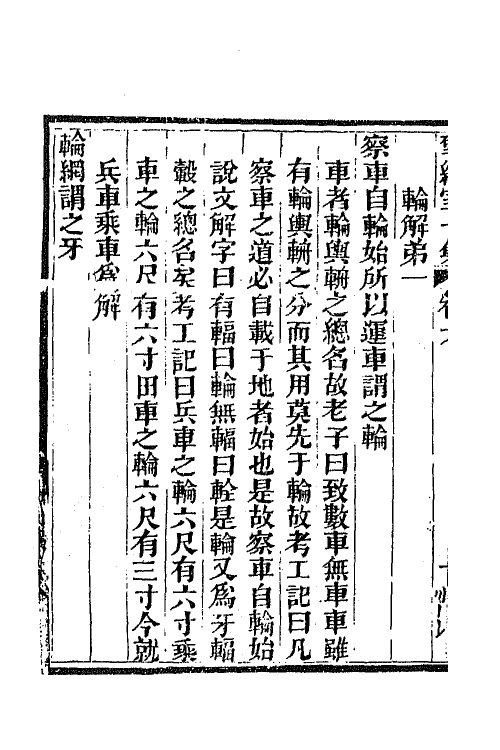 輪解弟一
察車自輪始所以運車謂之輪
車者輪輿輈之總名故老子曰致數車無車車雖
有輪輿輈之分而其用莫先于輪故考工記曰凡
察車之道必自載于地者始也是故察車自輪始
說文解字曰有輻曰輪無輻曰輇是輪又爲牙輻
轂之總名矣考工記曰兵車之輪六尺有六寸乘
車之輪六尺有六寸田車之輪六尺有三寸今就
兵車乘車爲解
輪網謂之牙